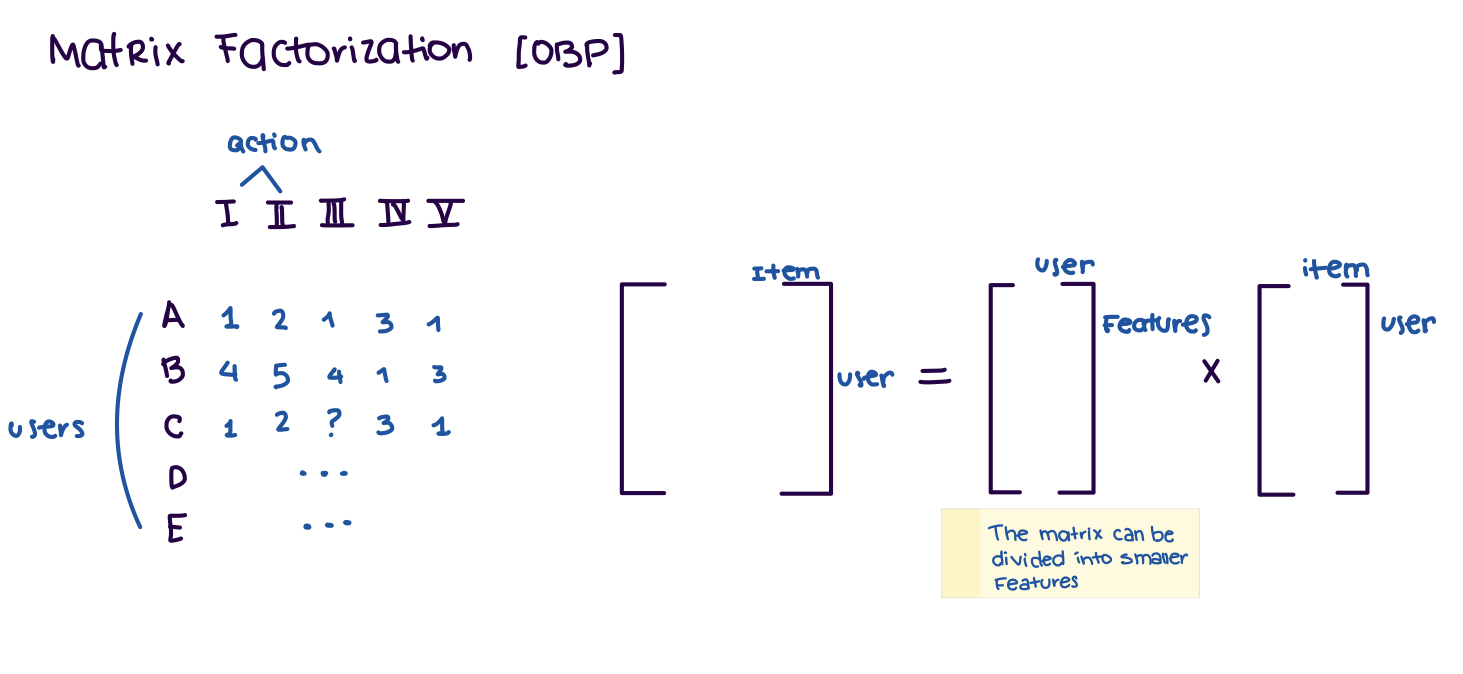 Matrix Factorization [OBP]
action
I II III IV V
A 1 2 1 3 1
B 4 5 4 1 3
users C 1 2 ? 3 1
D ...
E ...
Item
user
=
user
Features
x
item
user
The matrix can be
divided into smaller
Features